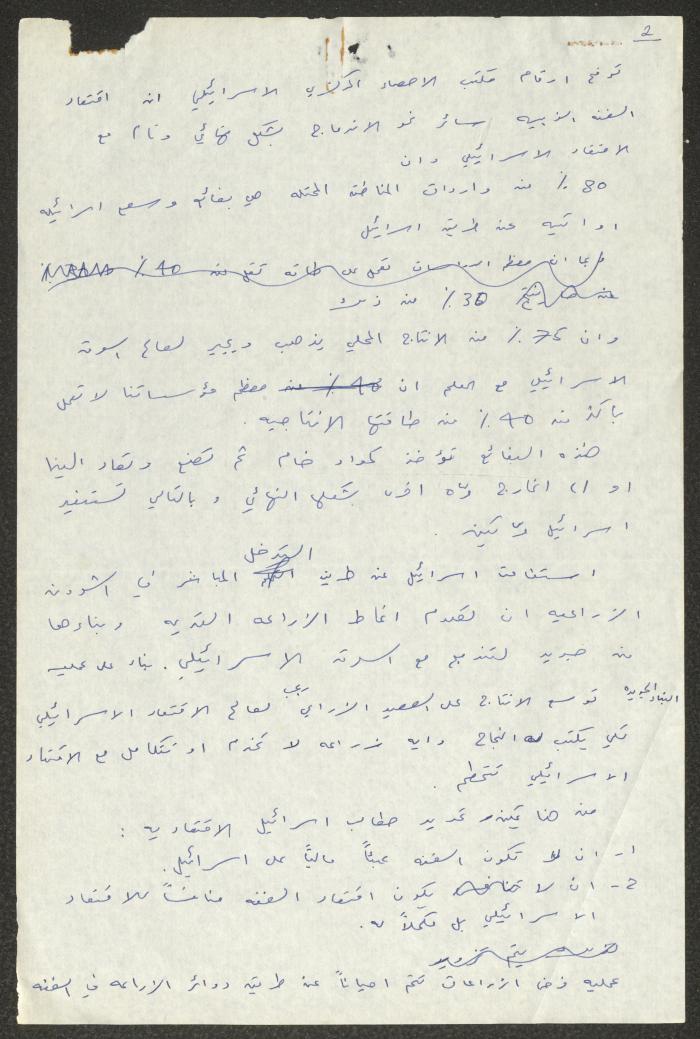 2
توضح ارقام مكتب الاحصاء المركزي الاسرائيلي ان اقتصاد
الضفة الغربيه سائر نحو الاندماج بشكل نهائي وتام مع
الاقتصاد الاسرائيلي وان
80 ٪ من واردات المناطق المحتله هي بضائع وسلع اسرائيليه
او اتيه عن طريق اسرائيل
بما ان معظم تعمل على طاقه تقل من 40 ٪
30 ٪ من ذلك
وان 75 ٪ من الانتاج المحلي يذهب ويجير لصالح السوق
الاسرائيلي مع العلم ان 40 ٪ من معظم مؤسساتنا لا تعمل
باكثر من 40 ٪ من طاقتها الانتاجيه .
هذه البضائع تؤخذ كمواد خام ثم تصنع وتعاد الينا
او الى الخارج مره اخرى بشكلها النهائي وبالتالي تستفيد
اسرائيل مرتين .
التدخل
استطاعت اسرائيل عن طريق المباشر في الشؤون
الزراعيه ان تهدم انماط الزراعه القديمه وبناءها
من جديد لتندمج مع السوق الاسرائيلي . بناء على عمليه
البناء الجديده توسع الانتاج على الصعيد الزراعي يجب لصالح الاقتصاد الاسرائيلي
لكي يكتب له النجاح وايه زراعه لا تخدم او تتكامل مع الاقتصاد
الاسرائيلي تتحطم .
من هنا يمكن تحديد مطالب اسرائيل الاقتصاديه :
1- ان لا تكون الضفه عبئاً مالياً على اسرائيل .
2- ان لا يكون اقتصاد الضفه منافساً للاقتصاد
الاسرائيلي بل مكملاً له .
يتم
عمليه فرض الزراعات تتم احياناً عن طريق دوائر الزراعه في الضفه